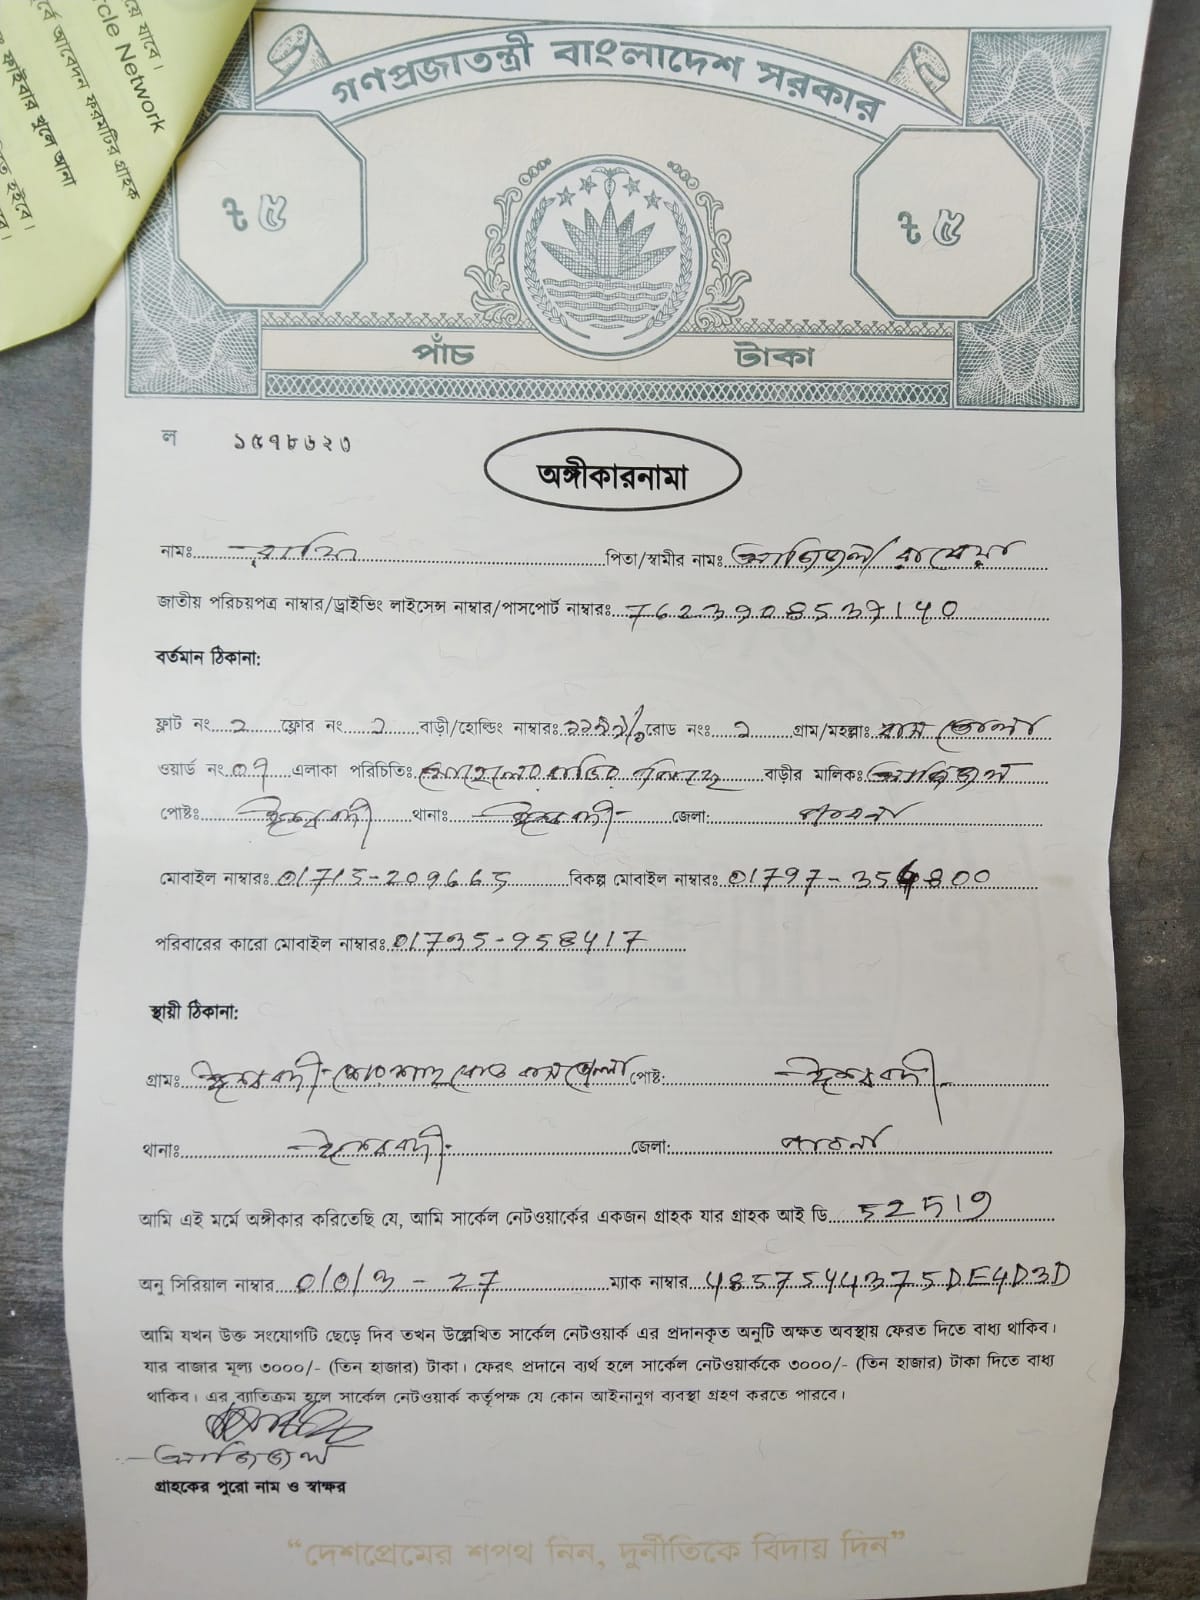 য়ে যাবে।
র্বে আবেদন ফরমটির গ্রাহক
rcle Network
ফাইবার খুলে আনা
হইবে।
গণপ্রজাতন্ত্রী বাংলাদেশ সরকার
৳ ৫ ৳ ৫
পাঁচ টাকা
ল ১৫৭৮৬২৩
অঙ্গীকারনামা
নামঃ পিতা/স্বামীর নামঃ আজিজুল/
জাতীয় পরিচয়পত্র নাম্বার/ড্রাইভিং লাইসেন্স নাম্বার/পাসপোর্ট নাম্বারঃ
বর্তমান ঠিকানা:
ফ্লাট নং ২ ফ্লোর নং ২ বাড়ী/হোল্ডিং নাম্বারঃ রোড নংঃ ২ গ্রাম/মহল্লাঃ
ওয়ার্ড নং ০৭ এলাকা পরিচিতিঃ বাড়ীর মালিকঃ আজিজুল
পোষ্টঃ ঈশ্বরদী থানাঃ ঈশ্বরদী জেলা: পাবনা
মোবাইল নাম্বারঃ 01715-209665 বিকল্প মোবাইল নাম্বারঃ 01797-354800
পরিবারের কারো মোবাইল নাম্বারঃ 01735-958417
স্থায়ী ঠিকানা:
গ্রামঃ ঈশ্বরদী পোষ্ট: ঈশ্বরদী
থানাঃ ঈশ্বরদী জেলা: পাবনা
আমি এই মর্মে অঙ্গীকার করিতেছি যে, আমি সার্কেল নেটওয়ার্কের একজন গ্রাহক যার গ্রাহক আই ডি 52519
অনু সিরিয়াল নাম্বার 0/0/3 - 27 ম্যাক নাম্বার 4857544375DE4D3D
আমি যখন উক্ত সংযোগটি ছেড়ে দিব তখন উল্লেখিত সার্কেল নেটওয়ার্ক এর প্রদানকৃত অনুটি অক্ষত অবস্থায় ফেরত দিতে বাধ্য থাকিব।
যার বাজার মূল্য ৩০০০/- (তিন হাজার) টাকা। ফেরৎ প্রদানে ব্যর্থ হলে সার্কেল নেটওয়ার্ককে ৩০০০/- (তিন হাজার) টাকা দিতে বাধ্য
থাকিব। এর ব্যতিক্রম হলে সার্কেল নেটওয়ার্ক কর্তৃপক্ষ যে কোন আইনানুগ ব্যবস্থা গ্রহণ করতে পারবে।
আজিজুল
গ্রাহকের পুরো নাম ও স্বাক্ষর
“দেশপ্রেমের শপথ নিন, দুর্নীতিকে বিদায় দিন”